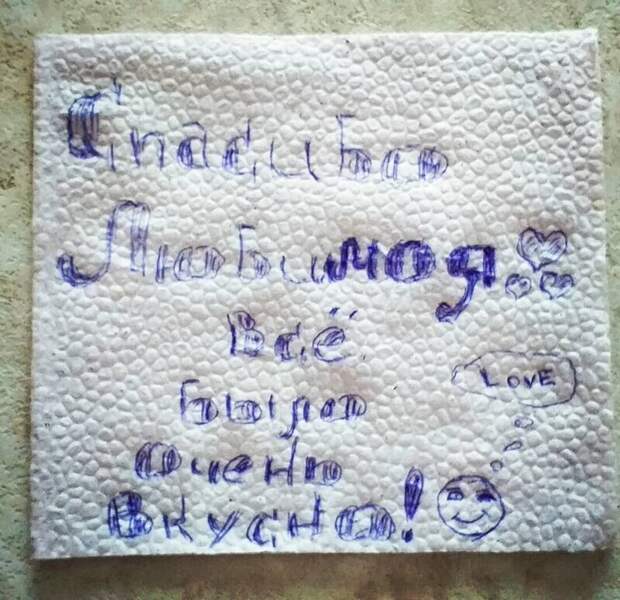 Спасибо
Любимая
Всё
LOVE
было
очень
Вкусно!